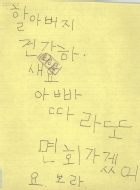 할아버지
건강하
새요
아빠
따라또
면회가겠
요 보라